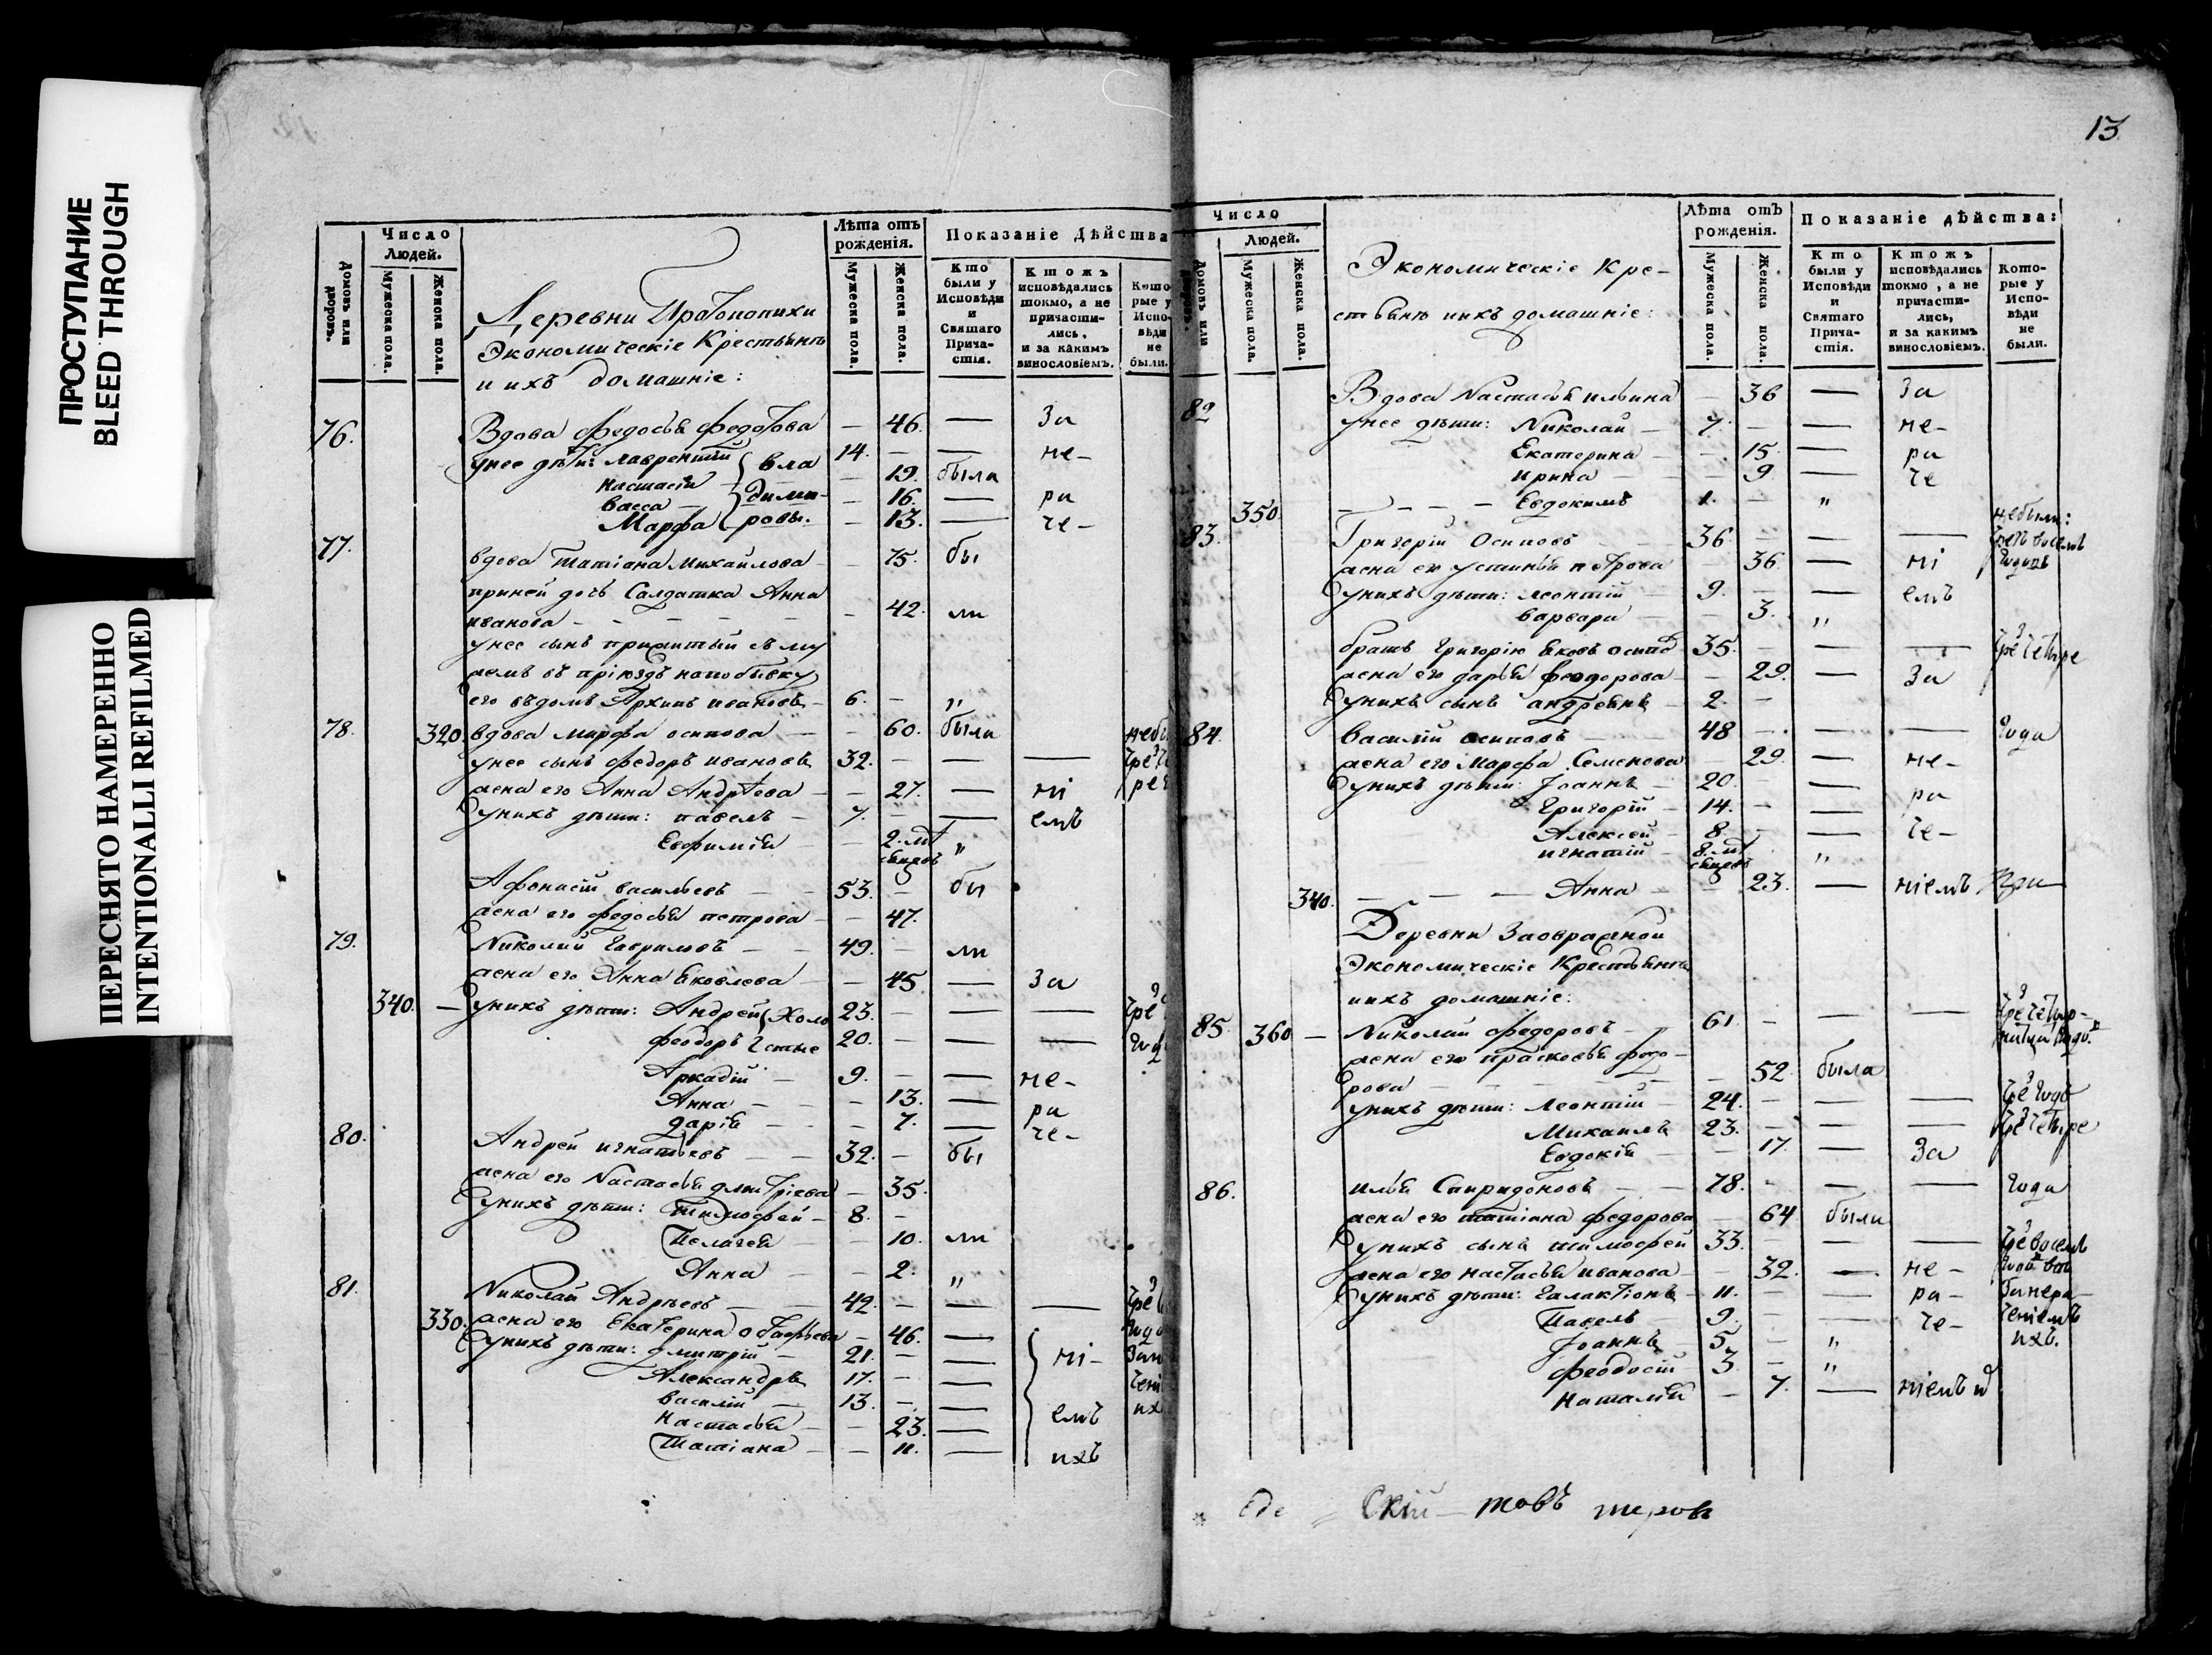 ПРОСТУПАНИЕ
BLEED THROUGH
ПЕРЕСНЯТО НАМЕРЕННО
INTENTIONALLI REFILMED
Число
Людей.
Домовъ или дворовъ.
Мужеска пола.
Женска пола.
Деревни Протопопихи
Экономическіе Крестьянѣ
и ихъ домашніе:
Лѣта отъ рожденія.
Мужеска пола.
Женска пола.
Показаніе Дѣйства
Кто были у Исповѣди и Святаго Причастія.
Ктожъ исповѣдались токмо, а не причастились, и за какимъ винословіемъ.
Которые у Исповѣди не были.
76. Вдова Федосья Федотова — 46. — За
унее дѣти: Лаврентій 14. — — не-
Настасія — 19. была
Васса — 16. — ра
Марфа — 13. — че-
Владимировы.
77. вдова Татіана Михайлова — 75. бы
приней дочь Салдатка Анна
иванова — 42. ли
унее сынъ прижитый съ му
жемъ въ пріѣздъ напобывку
его въдомъ Архипъ ивановъ — 6. — "
78. 320. вдова Марфа осипова — 60. была
унее сынъ Федоръ ивановъ 32. — — —
жена его Анна Андрѣева — 27. — ні
унихъ дѣти: павелъ — 7. — — емъ
Евфимія — 2. "
Афонасій васильевъ — 53. — бы
жена его федосья петрова — 47.
79. Николай Гавриловъ — 49. — ли
жена его Анна Яковлева — 45 — За
340. — унихъ дѣти: Андрей 23. — — —
феодоръ 20. — — —
Холостые
Аркадій — 9. — — не-
Анна — 13. — ра
дарія — 7. — че-
80. Андрей игнатьевъ — 32. — бы
жена его Настасья дмитріева — 35.
унихъ дѣти: Тимофей — 8. —
Пелагея — 10. ли
Анна — 2. "
81. Николай Андрѣевъ — 49. — — —
330. жена его Екатерина — 46. —
унихъ дѣти: дмитрій — 21. — — ні-
Александръ 17. — —
василій — 13. — — емъ
Настасья — 23. —
Татіана — 11. — ихъ
13
Число
Людей.
Домовъ или дворовъ.
Мужеска пола.
Женска пола.
Экономическіе Кре-
стьянѣ ихъ домашніе:
Лѣта отъ рожденія.
Мужеска пола.
Женска пола.
Показаніе дѣйства:
Кто были у Исповѣди и Святаго Причастія.
Ктожъ исповѣдались токмо, а не причастились, и за какимъ винословіемъ.
Которые у Исповѣди не были.
82 Вдова Настасья ильина — 36 — За
унее дѣти: Николай — 7. — — не-
Екатерина — 15. — ра
ирина — 9 — че
350. Евдокимъ 1. — "
83. Григорій Осиповъ 36. — — — небыли:
жена его устинья петрова 36. — ні
унихъ дѣти: леонтій — 9. — — емъ
варвара — 3. "
братъ Григорію Яковъ осипо 35. — — — чре четыре
жена его дарья феодорова — 29. — За
унихъ сынъ андреянъ — 2. —
84. Василій осиповъ — 48 — — — года
жена его Марфа Семенова 29. — не-
унихъ дѣти: Іоаннъ — 20. — ра
Григорій — 14. — —
Алексей — 8. — — че-
игнатій — 8. "
340. Анна — 23. — ніемъ
Деревни Заовражной
Экономическіе Крестьянѣ
ихъ домашніе:
85. 360 — Николай федоровъ — 61. — — —
жена его прасковья федо-
рова — 52. была
унихъ дѣти: Леонтій — 24. — — — чре годъ
Михаилъ — 23. — — — чре четыре
Евдокія — 17. — За
86. илья Спиридоновъ — 78. — — — года
жена его татіана федорова 64 были
унихъ сынъ тимофей 33. — — — чре восемь
жена его настасья иванова — 32. — не-
унихъ дѣти: Галактіонъ — 11. — — ра- Занера-
Павелъ — 9. — че- ченіемъ
Іоаннъ — 5. — " ихъ.
феодосій 3. — "
Наталія — 7. — ніемъ
скій — товъ